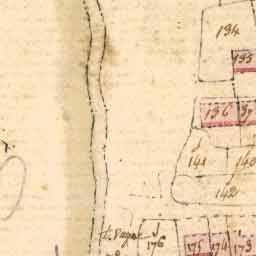 134
135
136 37
141 140
142
176 175 174 173